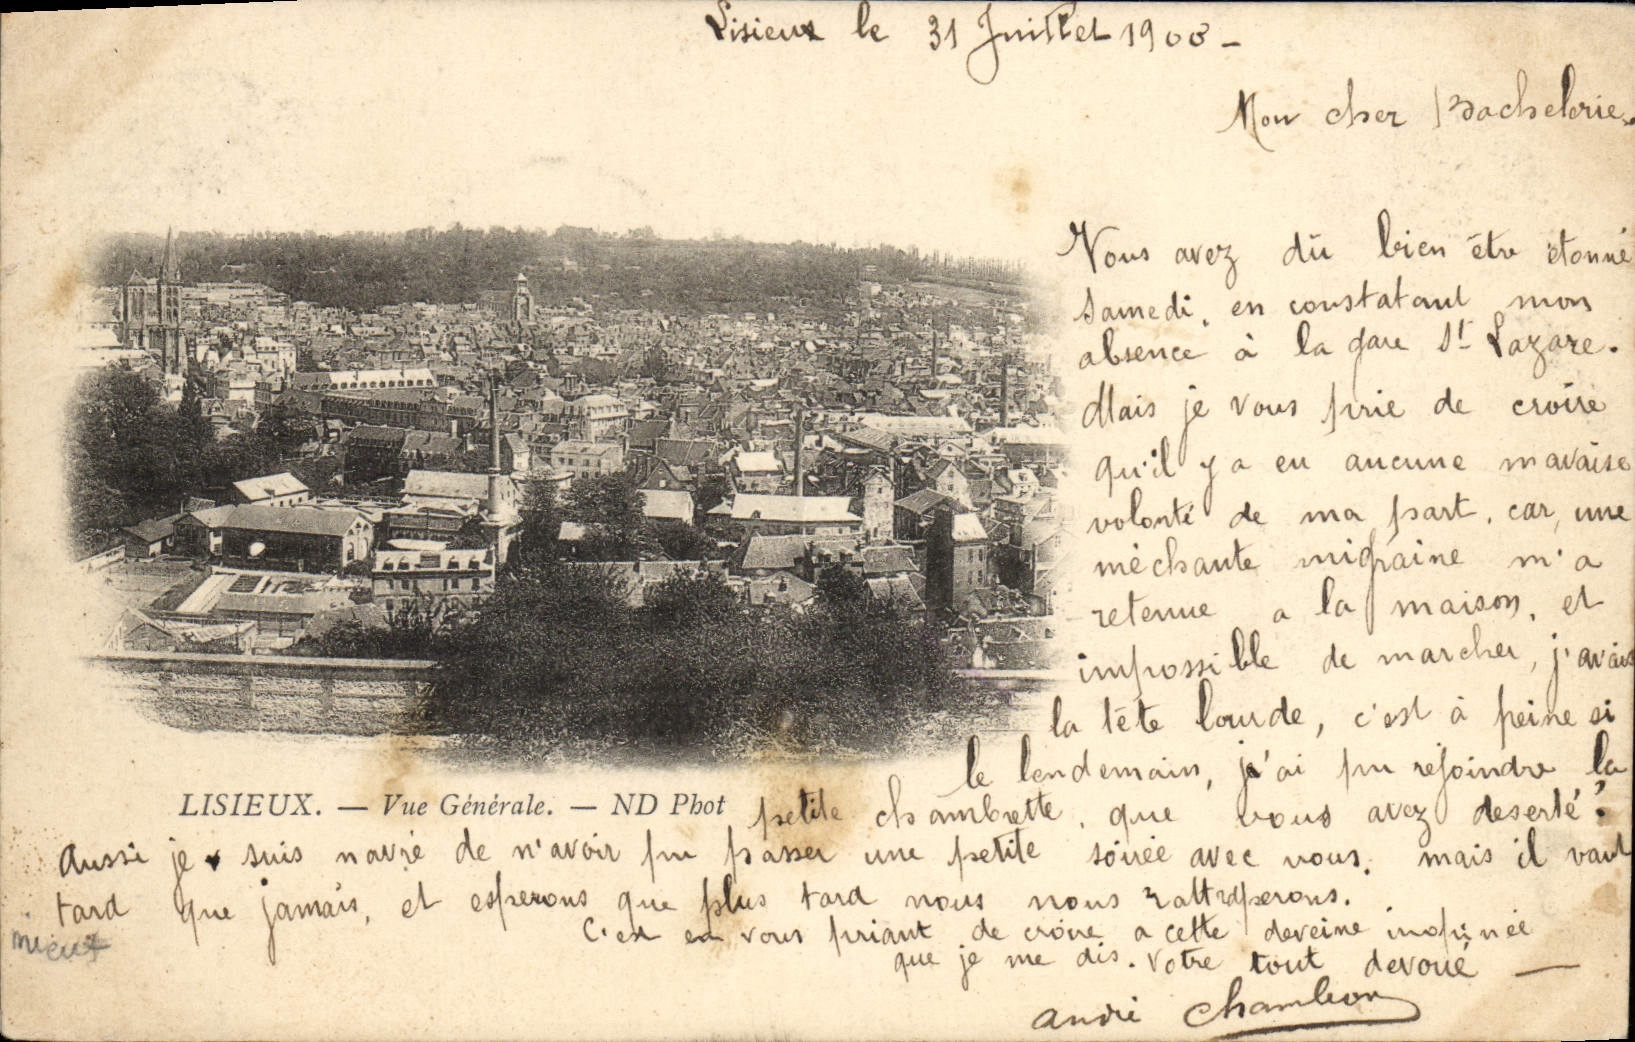 Lisieux le 31 Juillet 1900 -
Mon cher Bachelerie.
Vous avez dû bien être étonné
Samedi, en constatant mon
absence à la gare St Lazare.
Mais je vous prie de croire
qu'il y a eu aucune mavaise
volonté de ma part, car, une
méchante migraine m'a
retenue a la maison, et
impossible de marcher, j'avais
la tête lourde, c'est à peine si
le lendemain, j'ai pu rejoindre la
LISIEUX. — Vue Générale. — ND Phot
petite chambrette, que vous avez deserté?
Aussi je suis navré de n'avoir pu passer une petite soirée avec vous, mais il vaut
tard que jamais, et esperons que plus tard nous nous rattraperons.
mieux
C'est en vous priant de croire a cette deveine inopinée
que je me dis. Votre tout devoué —
André Chambon